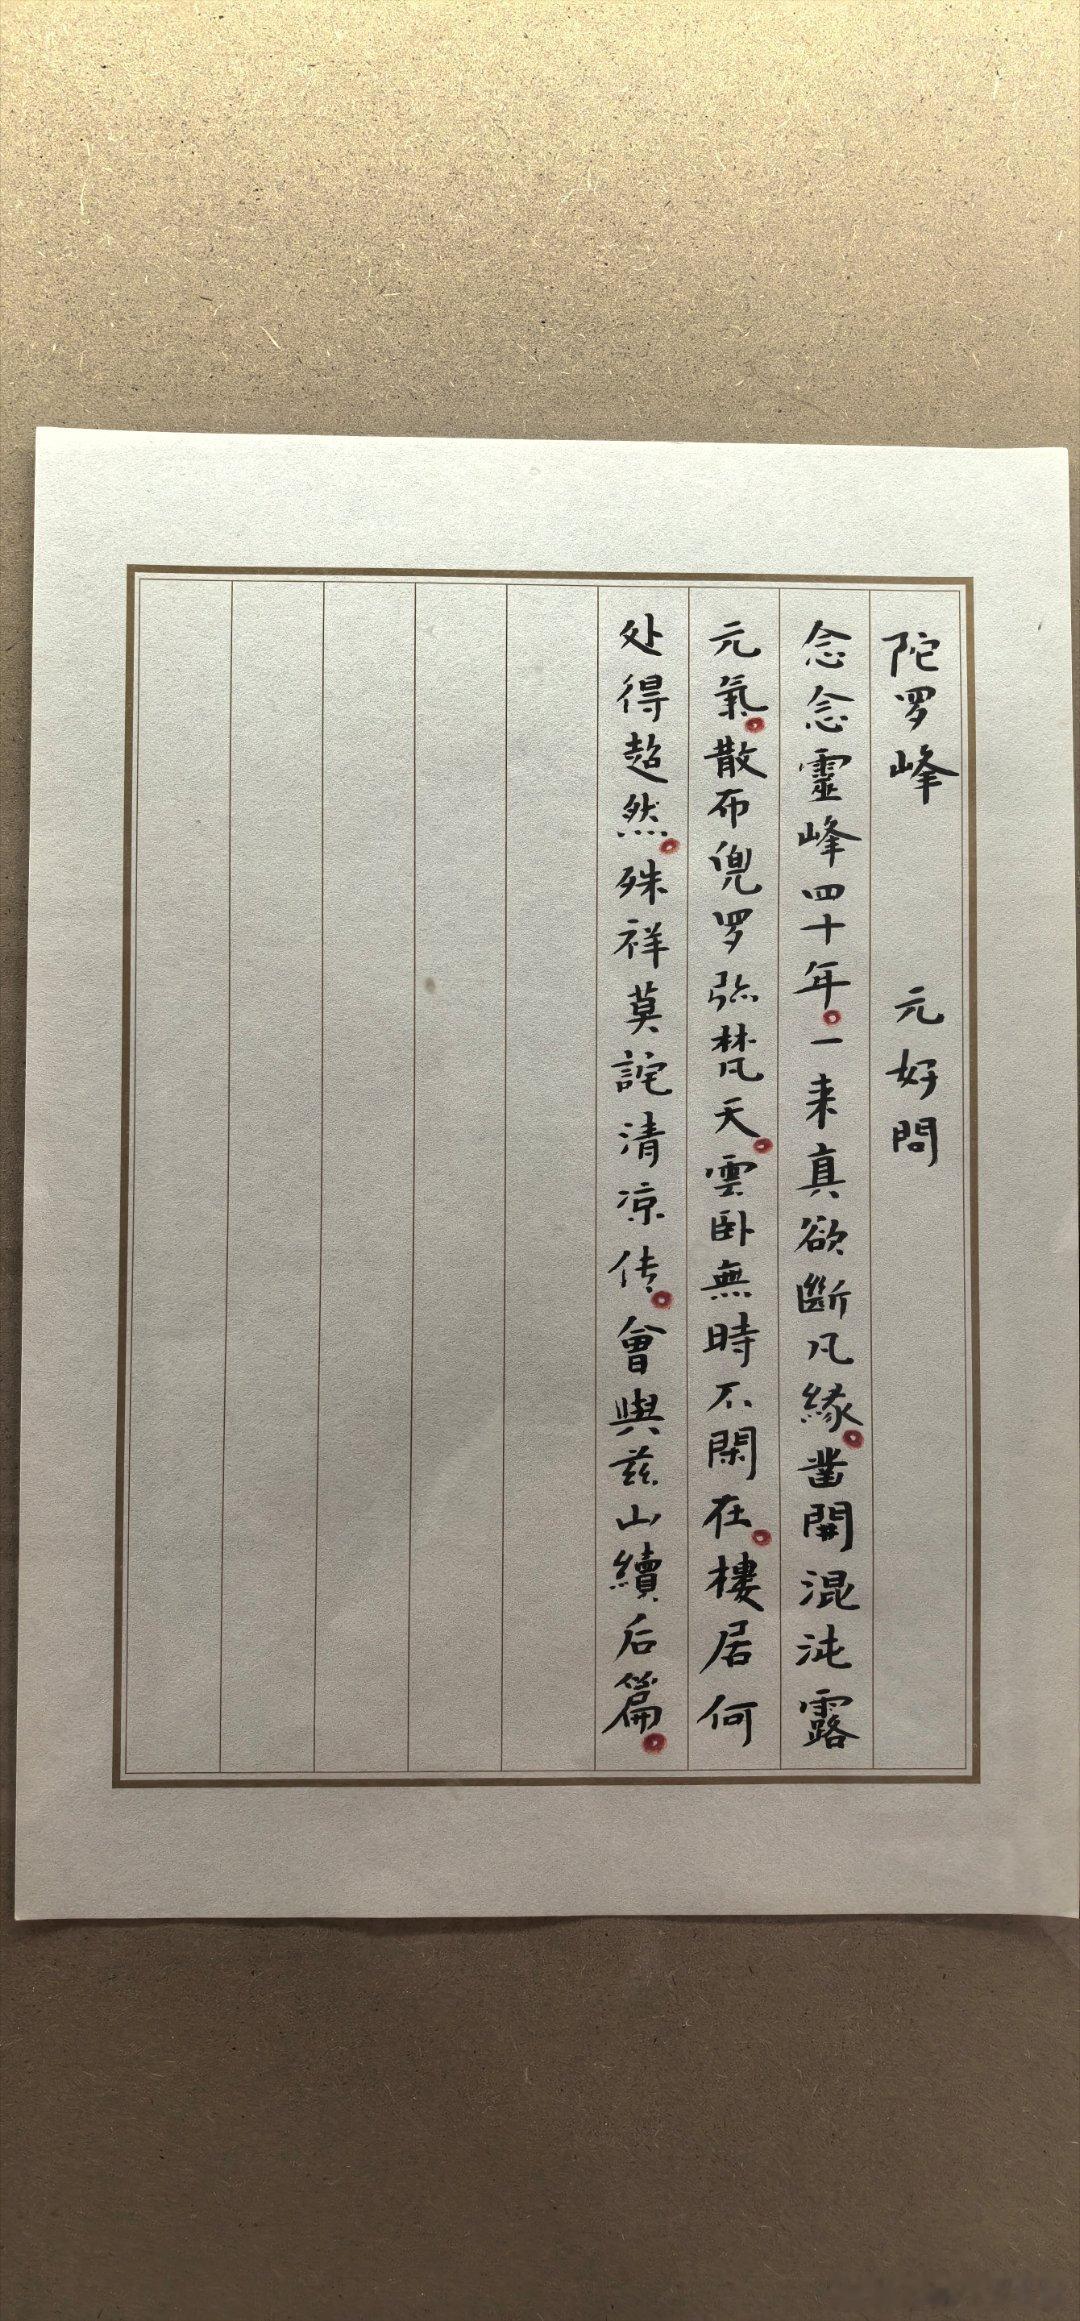 陀罗峰 元好問
念念靈峰四十年。一来真欲斷凡緣。凿開混沌露
元氣。散布兜罗弥梵天。雲卧無時不閑在。樓居何
处得超然。殊祥莫詫清凉传。會與兹山續后篇。